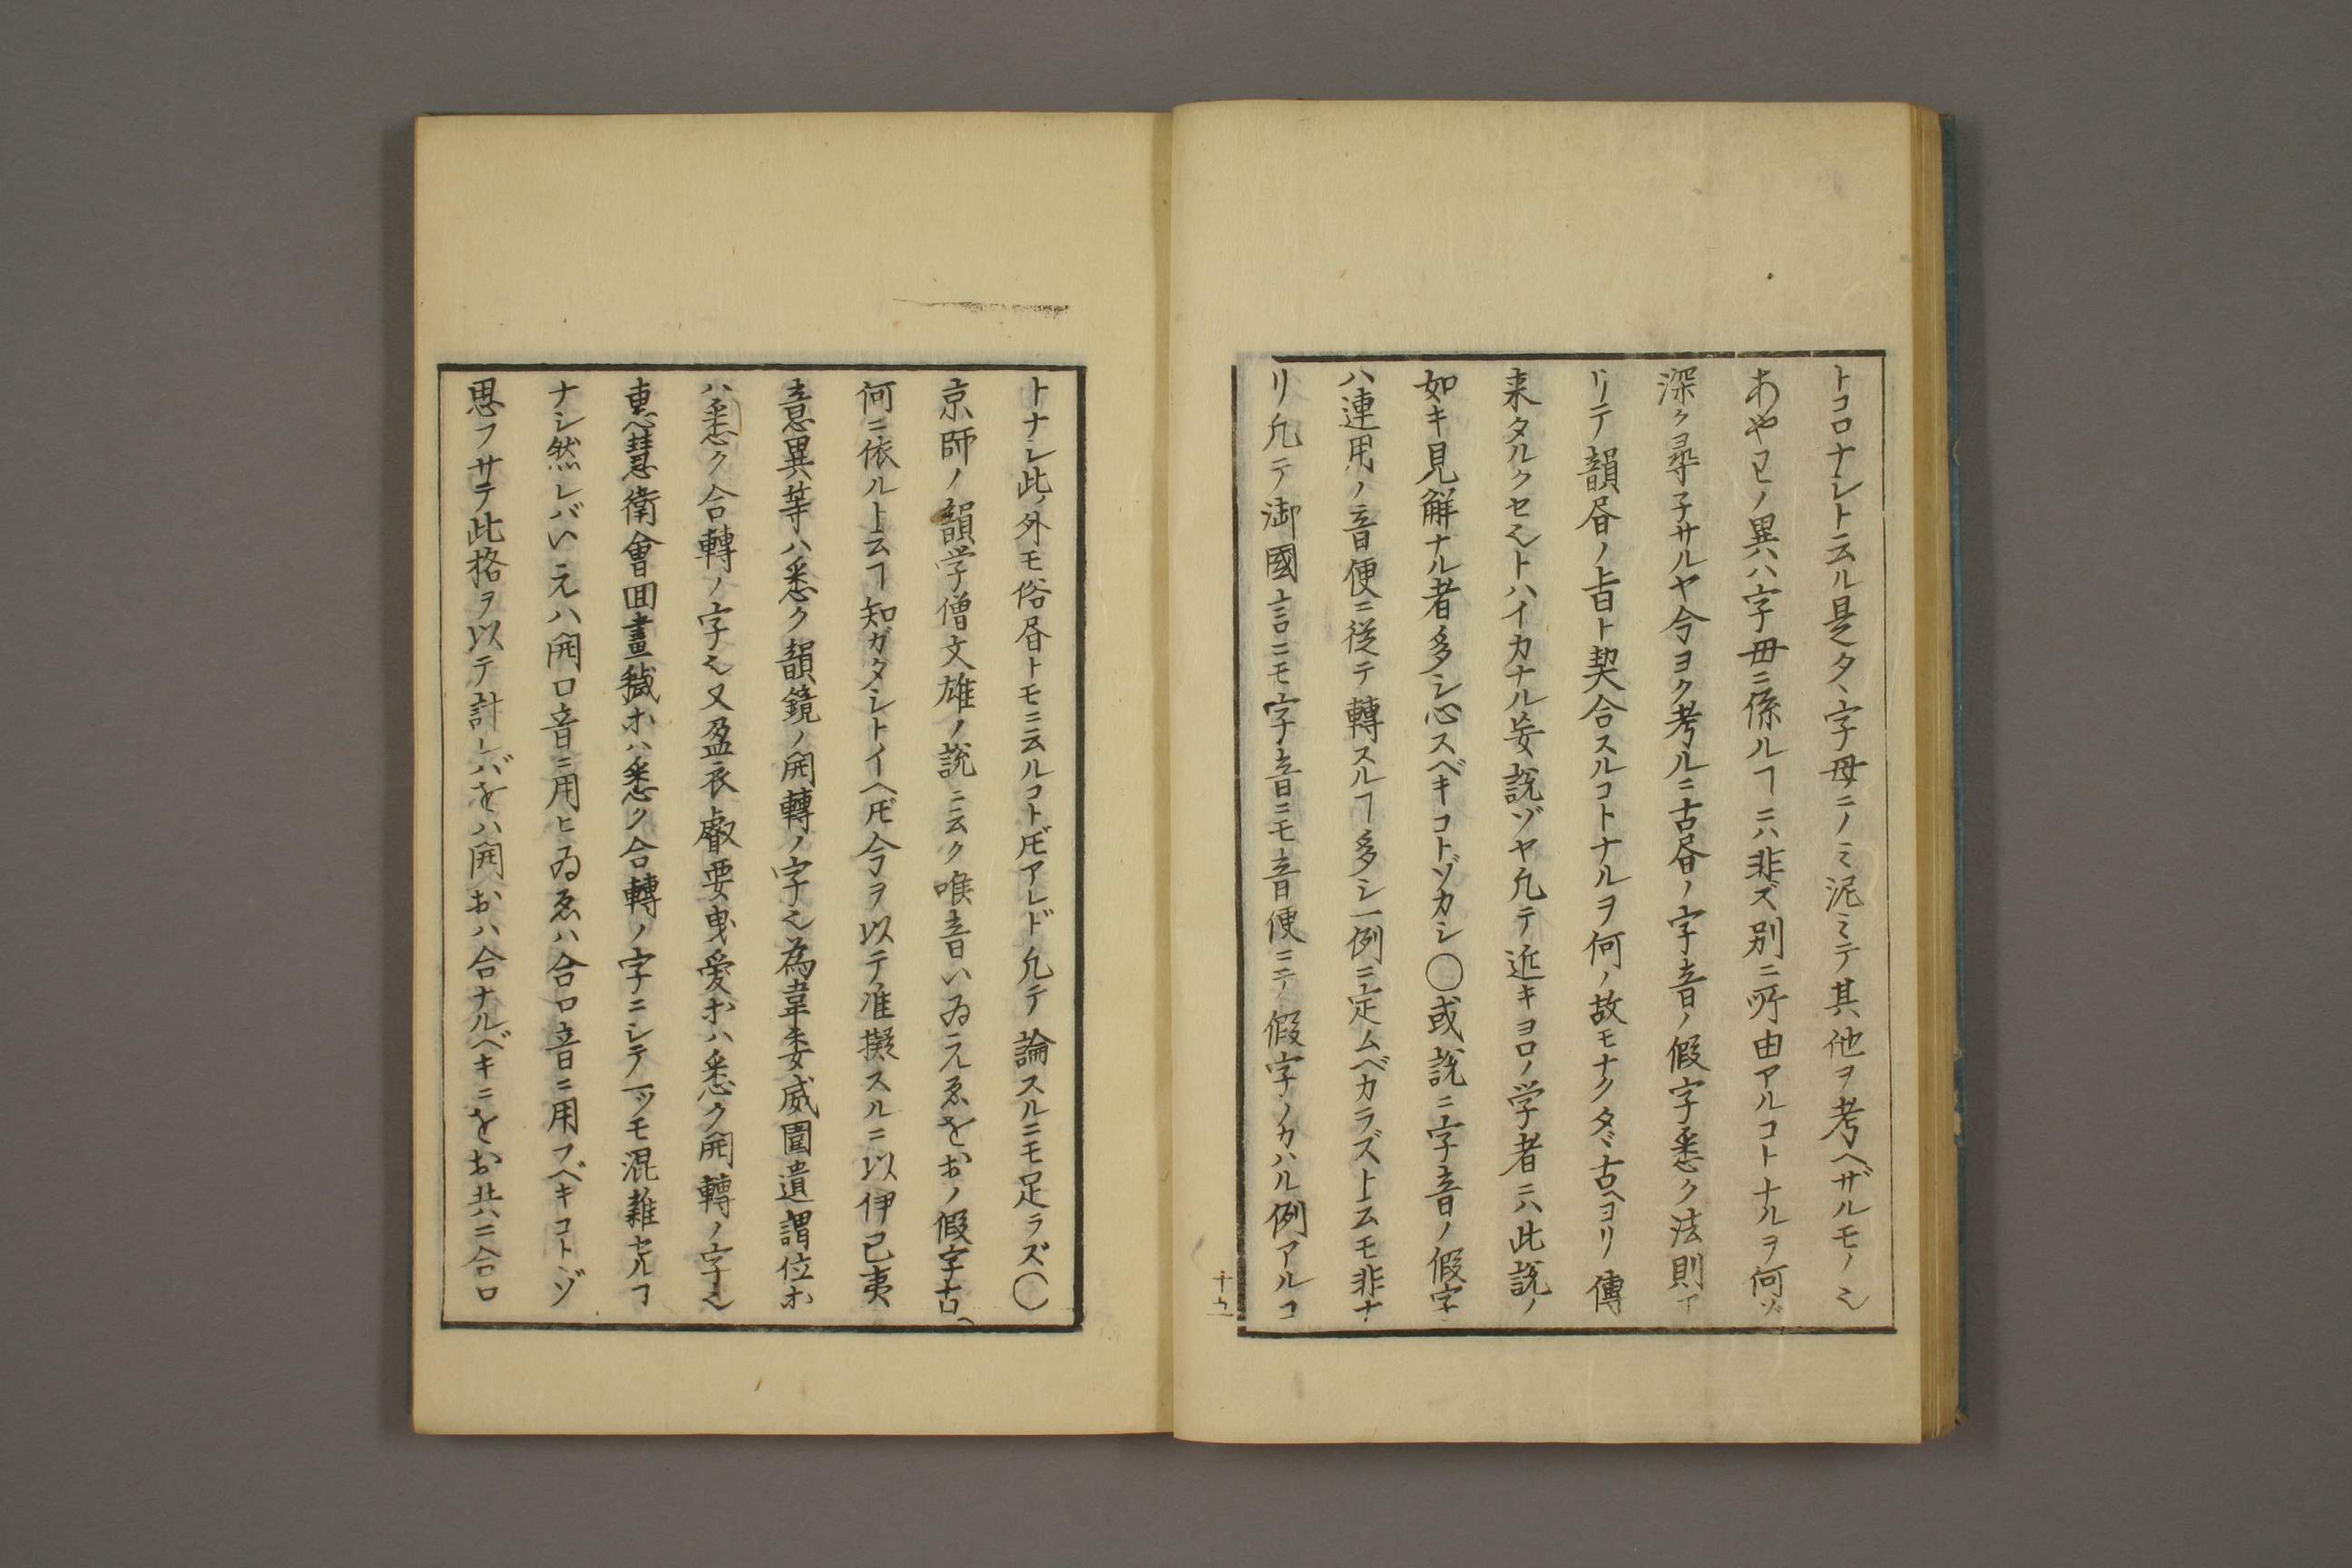 トコロナシト云ル是タヽ字母ニノミ泥ミテ其他ヲ考ヘザルモノ也
あやわノ異ハ字毋ニ係ルヿニハ非ズ別ニ所由アルコトナルヲ何ゾ
深ク尋子サルヤ今ヨク考ルニ古昔ノ字音ノ假字悉ク法則ア
リテ韻昔ノ旨ト契合スルコトナルヲ何ノ故モナクタヾ古ヘヨリ傳
来タルクセ也トハイカナル妄説ゾヤ凡テ近キヨロノ学者ニハ此説ノ
如キ見解ナル者多シ心スベキコトゾカシ〇或説ニ字音ノ假字
ハ連用ノ音便ニ従テ轉スルヿ多シ一例ニ定ムベカラズト云モ非ナ
リ凡テ御國言ニモ字音ニモ音便ニテ假字ノカハル例アルコ
十五
トナシ此ノ外モ俗昔トモニ云ルコト𪜈アレド凡テ論スルニモ足ラズ〇
京師ノ韻学僧文雄ノ説ニ云ク喉音いゐえゑをおノ假字古ヘ
何ニ依ルト云ヿ知ガタシトイヘ𪜈今ヲ以テ准擬スルニ以伊已夷
意異等ハ悉ク韻鏡ノ開轉ノ字也為韋委威圍遺謂位ホ
ハ悉ク合轉ノ字也又盈衣叡要曳愛ホハ悉ク開轉ノ字也
恵慧衛會囬畫穢ホハ悉ク合轉ノ字ニシテ一ツモ混雜セルヿ
ナシ然レバいえハ開口音ニ用ヒゐゑハ合口音ニ用フベキコトゾ
思フサテ此格ヲ以テ計レバをハ開おハ合ナルベキニをお共ニ合口